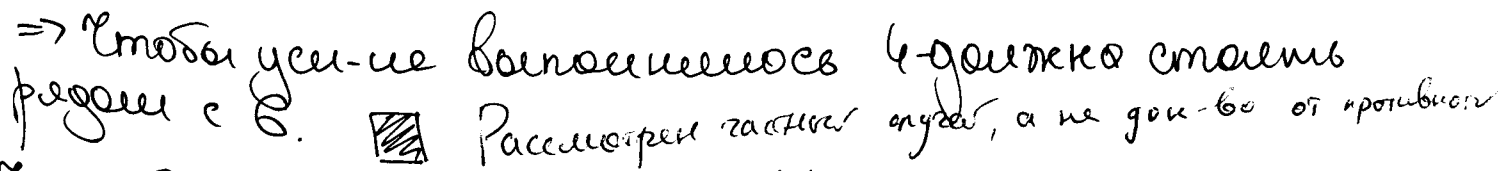 => Чтобы усл-ие выполнилось 4-должна стоять
рядом с 6. Рассмотрен частный случай, а не док-во от противного